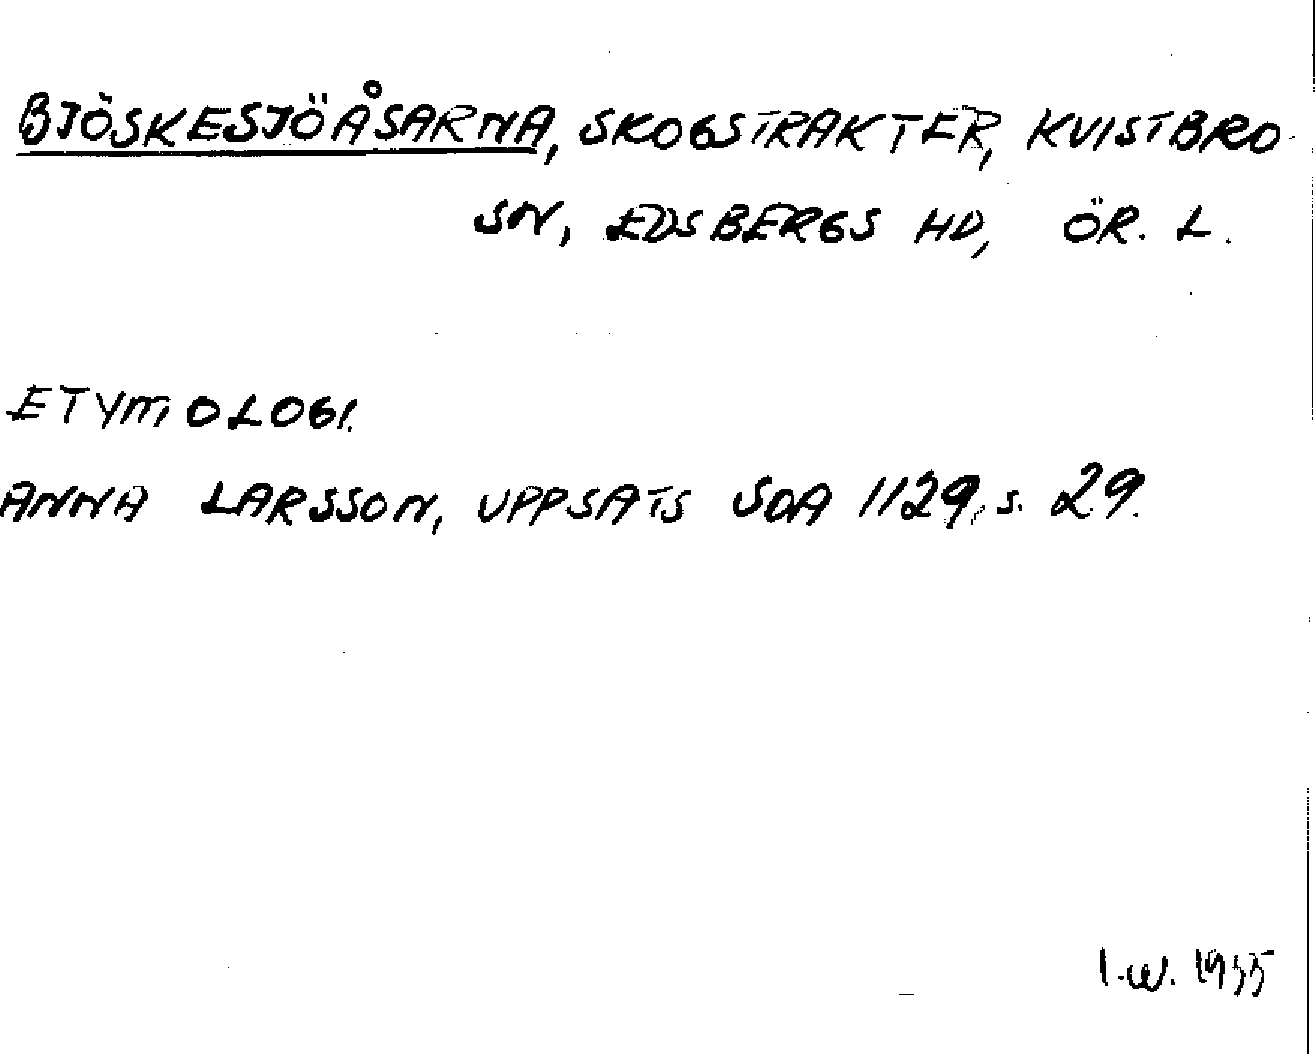 BJÖSKESJÖÅSARNA, SKOGSTRAKTER, KVISTBRO
SN, EDSBERGS HD, ÖR. L.
ETYMOLOGI.
ANNA LARSSON, UPPSATS SOA 1129, s. 29.
I.W. 1955